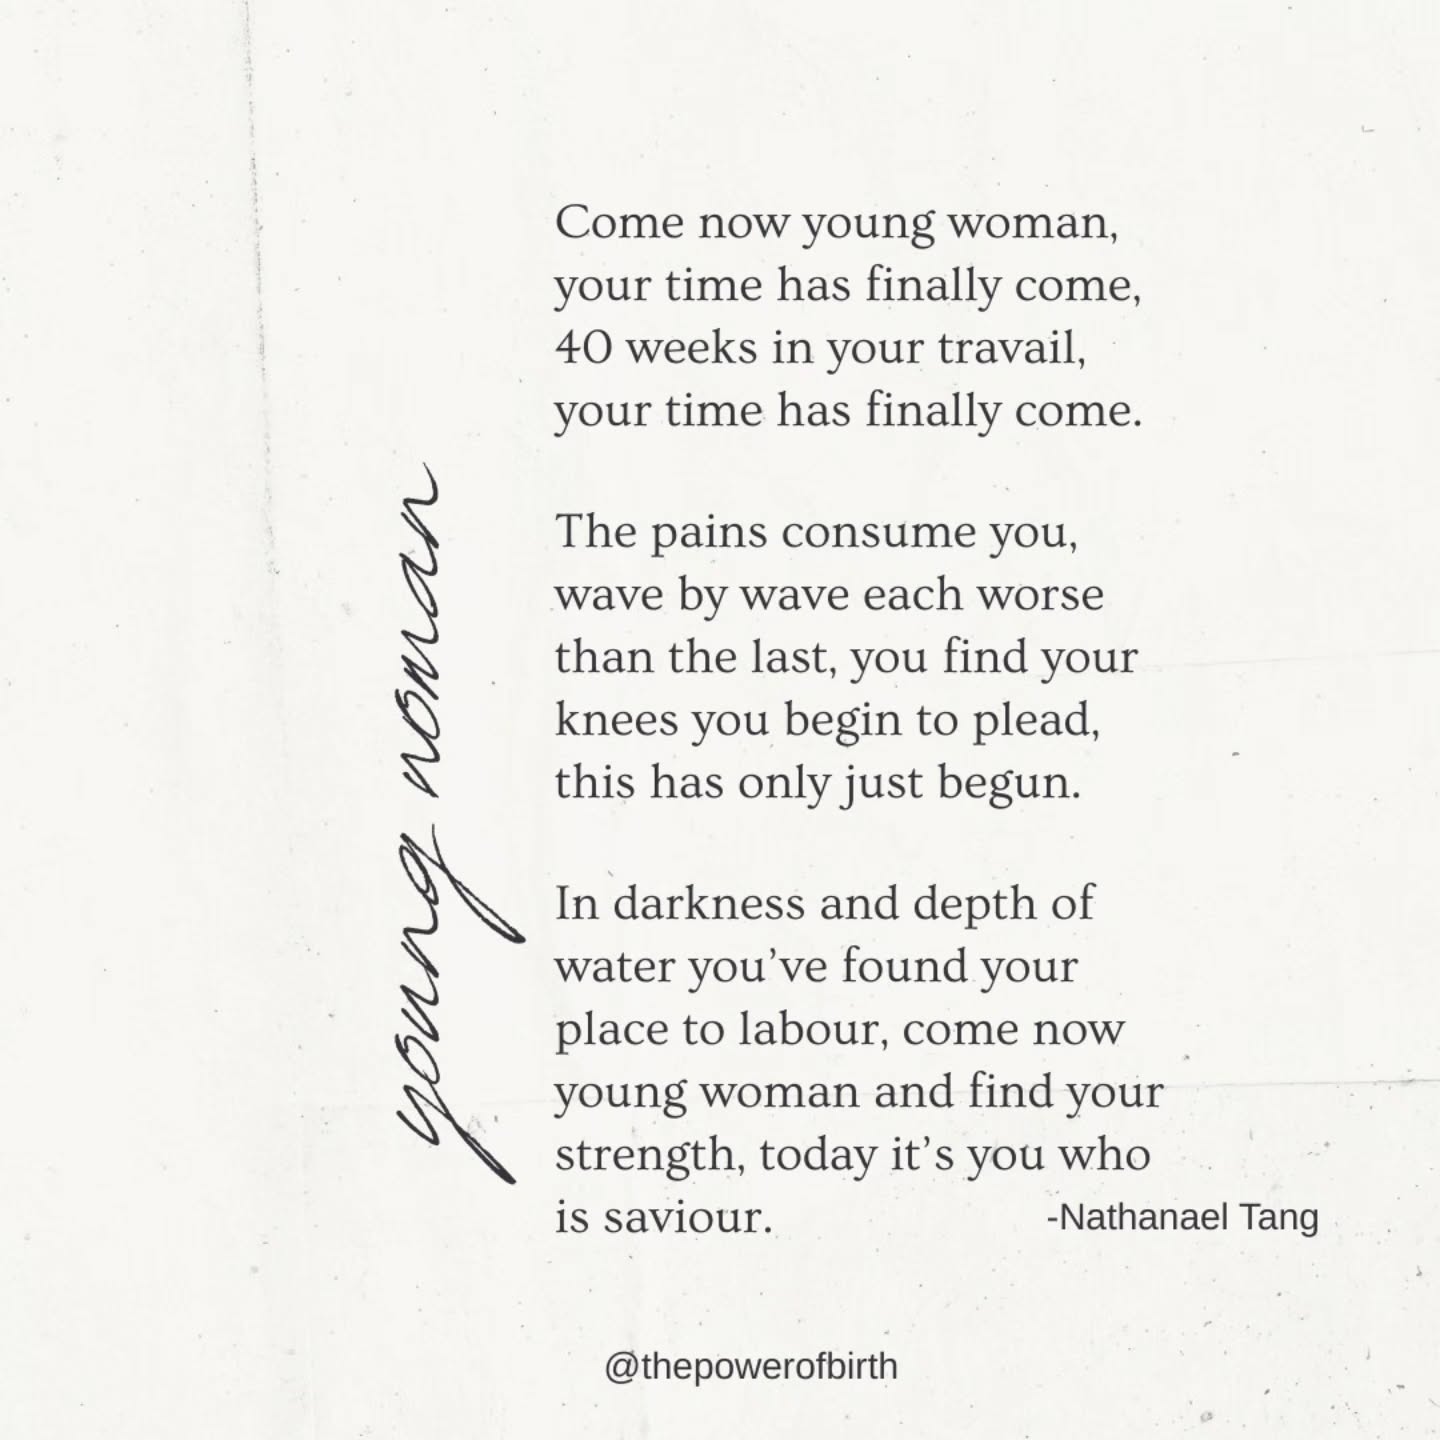 young woman
Come now young woman,
your time has finally come,
40 weeks in your travail,
your time has finally come.
The pains consume you,
wave by wave each worse
than the last, you find your
knees you begin to plead,
this has only just begun.
In darkness and depth of
water you’ve found your
place to labour, come now
young woman and find your
strength, today it’s you who
is saviour.
-Nathanael Tang
@thepowerofbirth